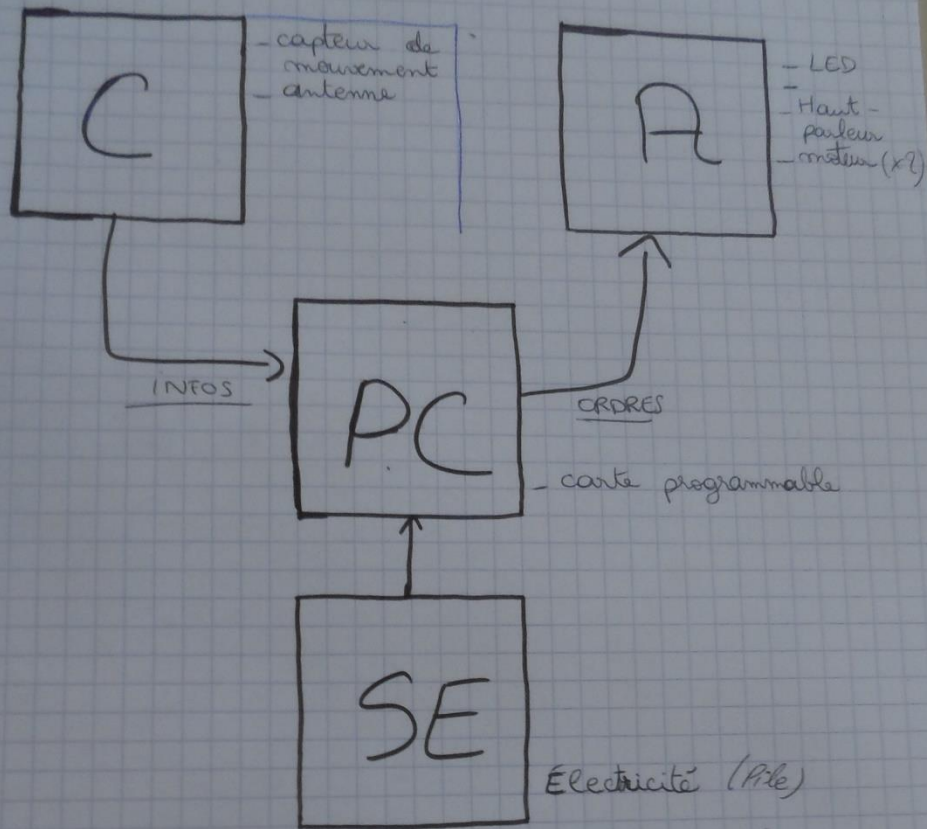 C
- capteur de
mouvement
- antenne
A
- LED
-
- Haut-
parleur
- moteur (x2)
INFOS
PC
ORDRES
- carte programmable
SE
Électricité (Pile)